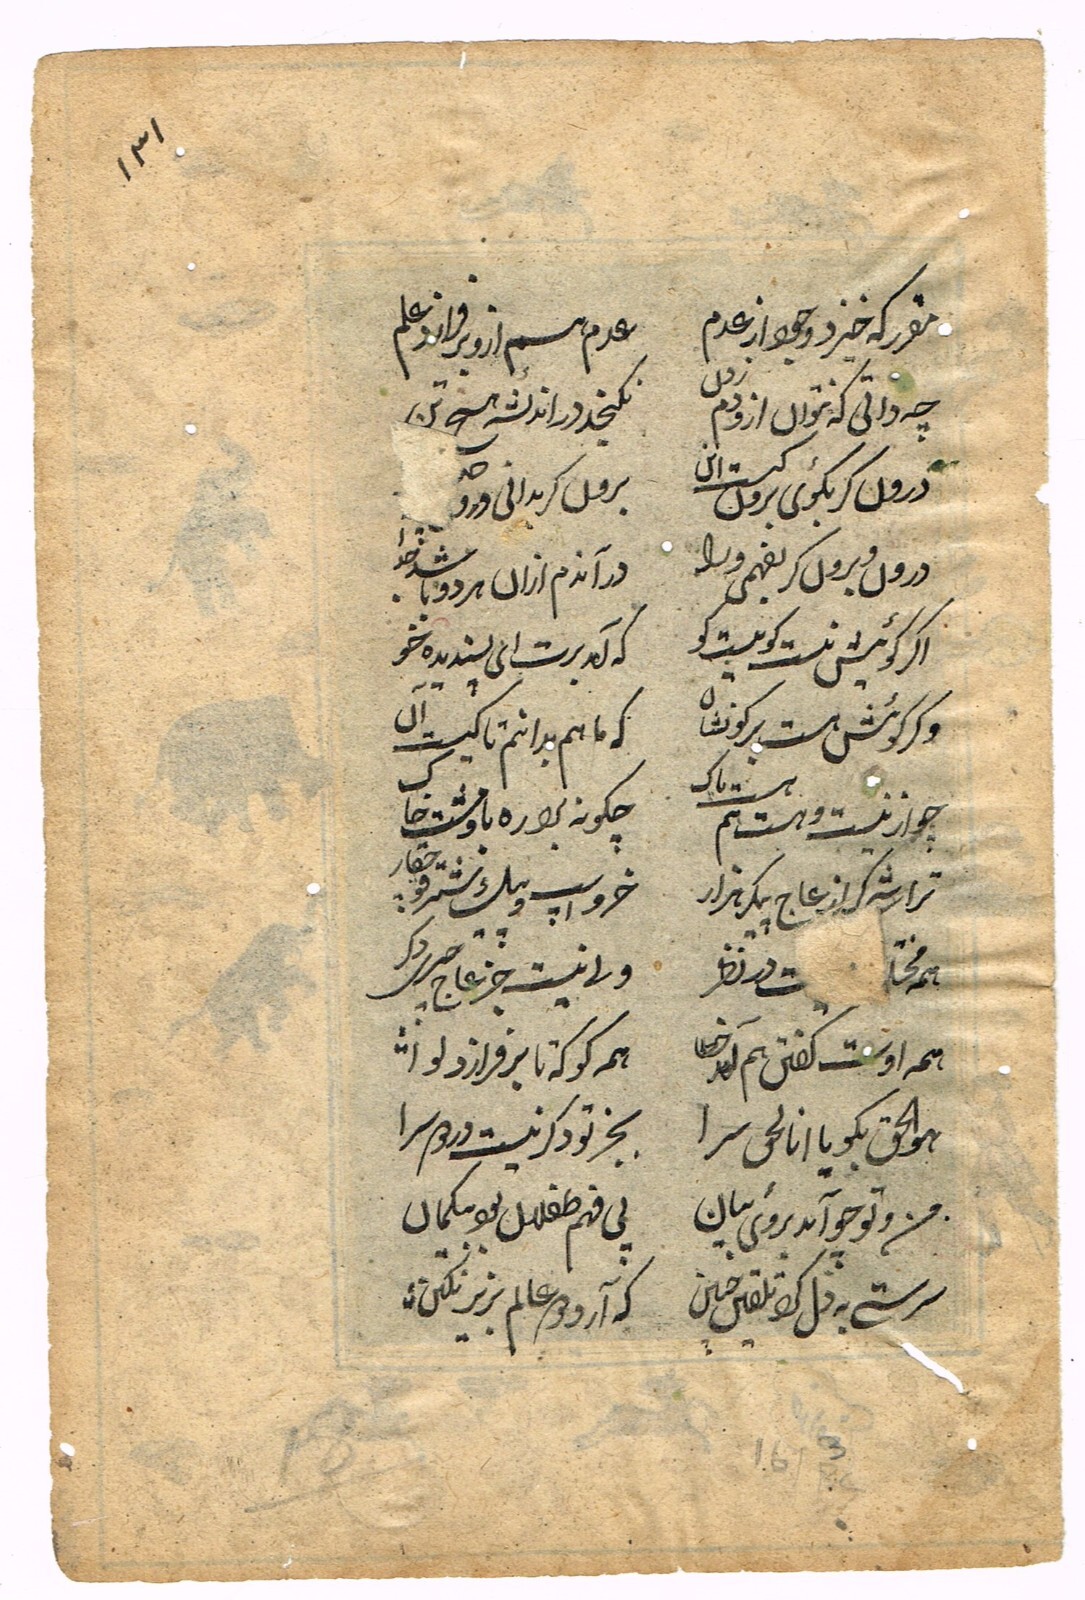 ۱۳۱
مقرر که خیزد وجود از عدم عدم هم ازو بر فرازد علم
چه ذاتی که نتوان ازو دم زدن نگنجد در اندیشه
درون گر بگوئی برون کیست این برون گر بدانی درون
درون و برون گر بفهمی ورا در آندم ازان هر دو باشد جدا
اگر گوئیش نیست کو نیست کو که آمد برت ای پسندیده خو
وگر گوئیش هست بر گو نشان که ما هم بدانیم تا کیست آن
چو از نیست و هست هم هست پاک چگونه برد ره باو مشت خاک
تراشد گر از عاج پیکر هزار خر و اسپ و پیل و شتر
همه در نظر ولی نیست جز عاج چیزی دگر
همه اوست گفتن هم آمد خطا همه گو که تا بر فرازد لوا
هو الحق بگو یا انا الحق سرا بجز تو دگر نیست در دو سرا
من و تو چو آمد بروی بیان پی فهم طفلان بود بیگمان
که آرد عالم بزیر نگین